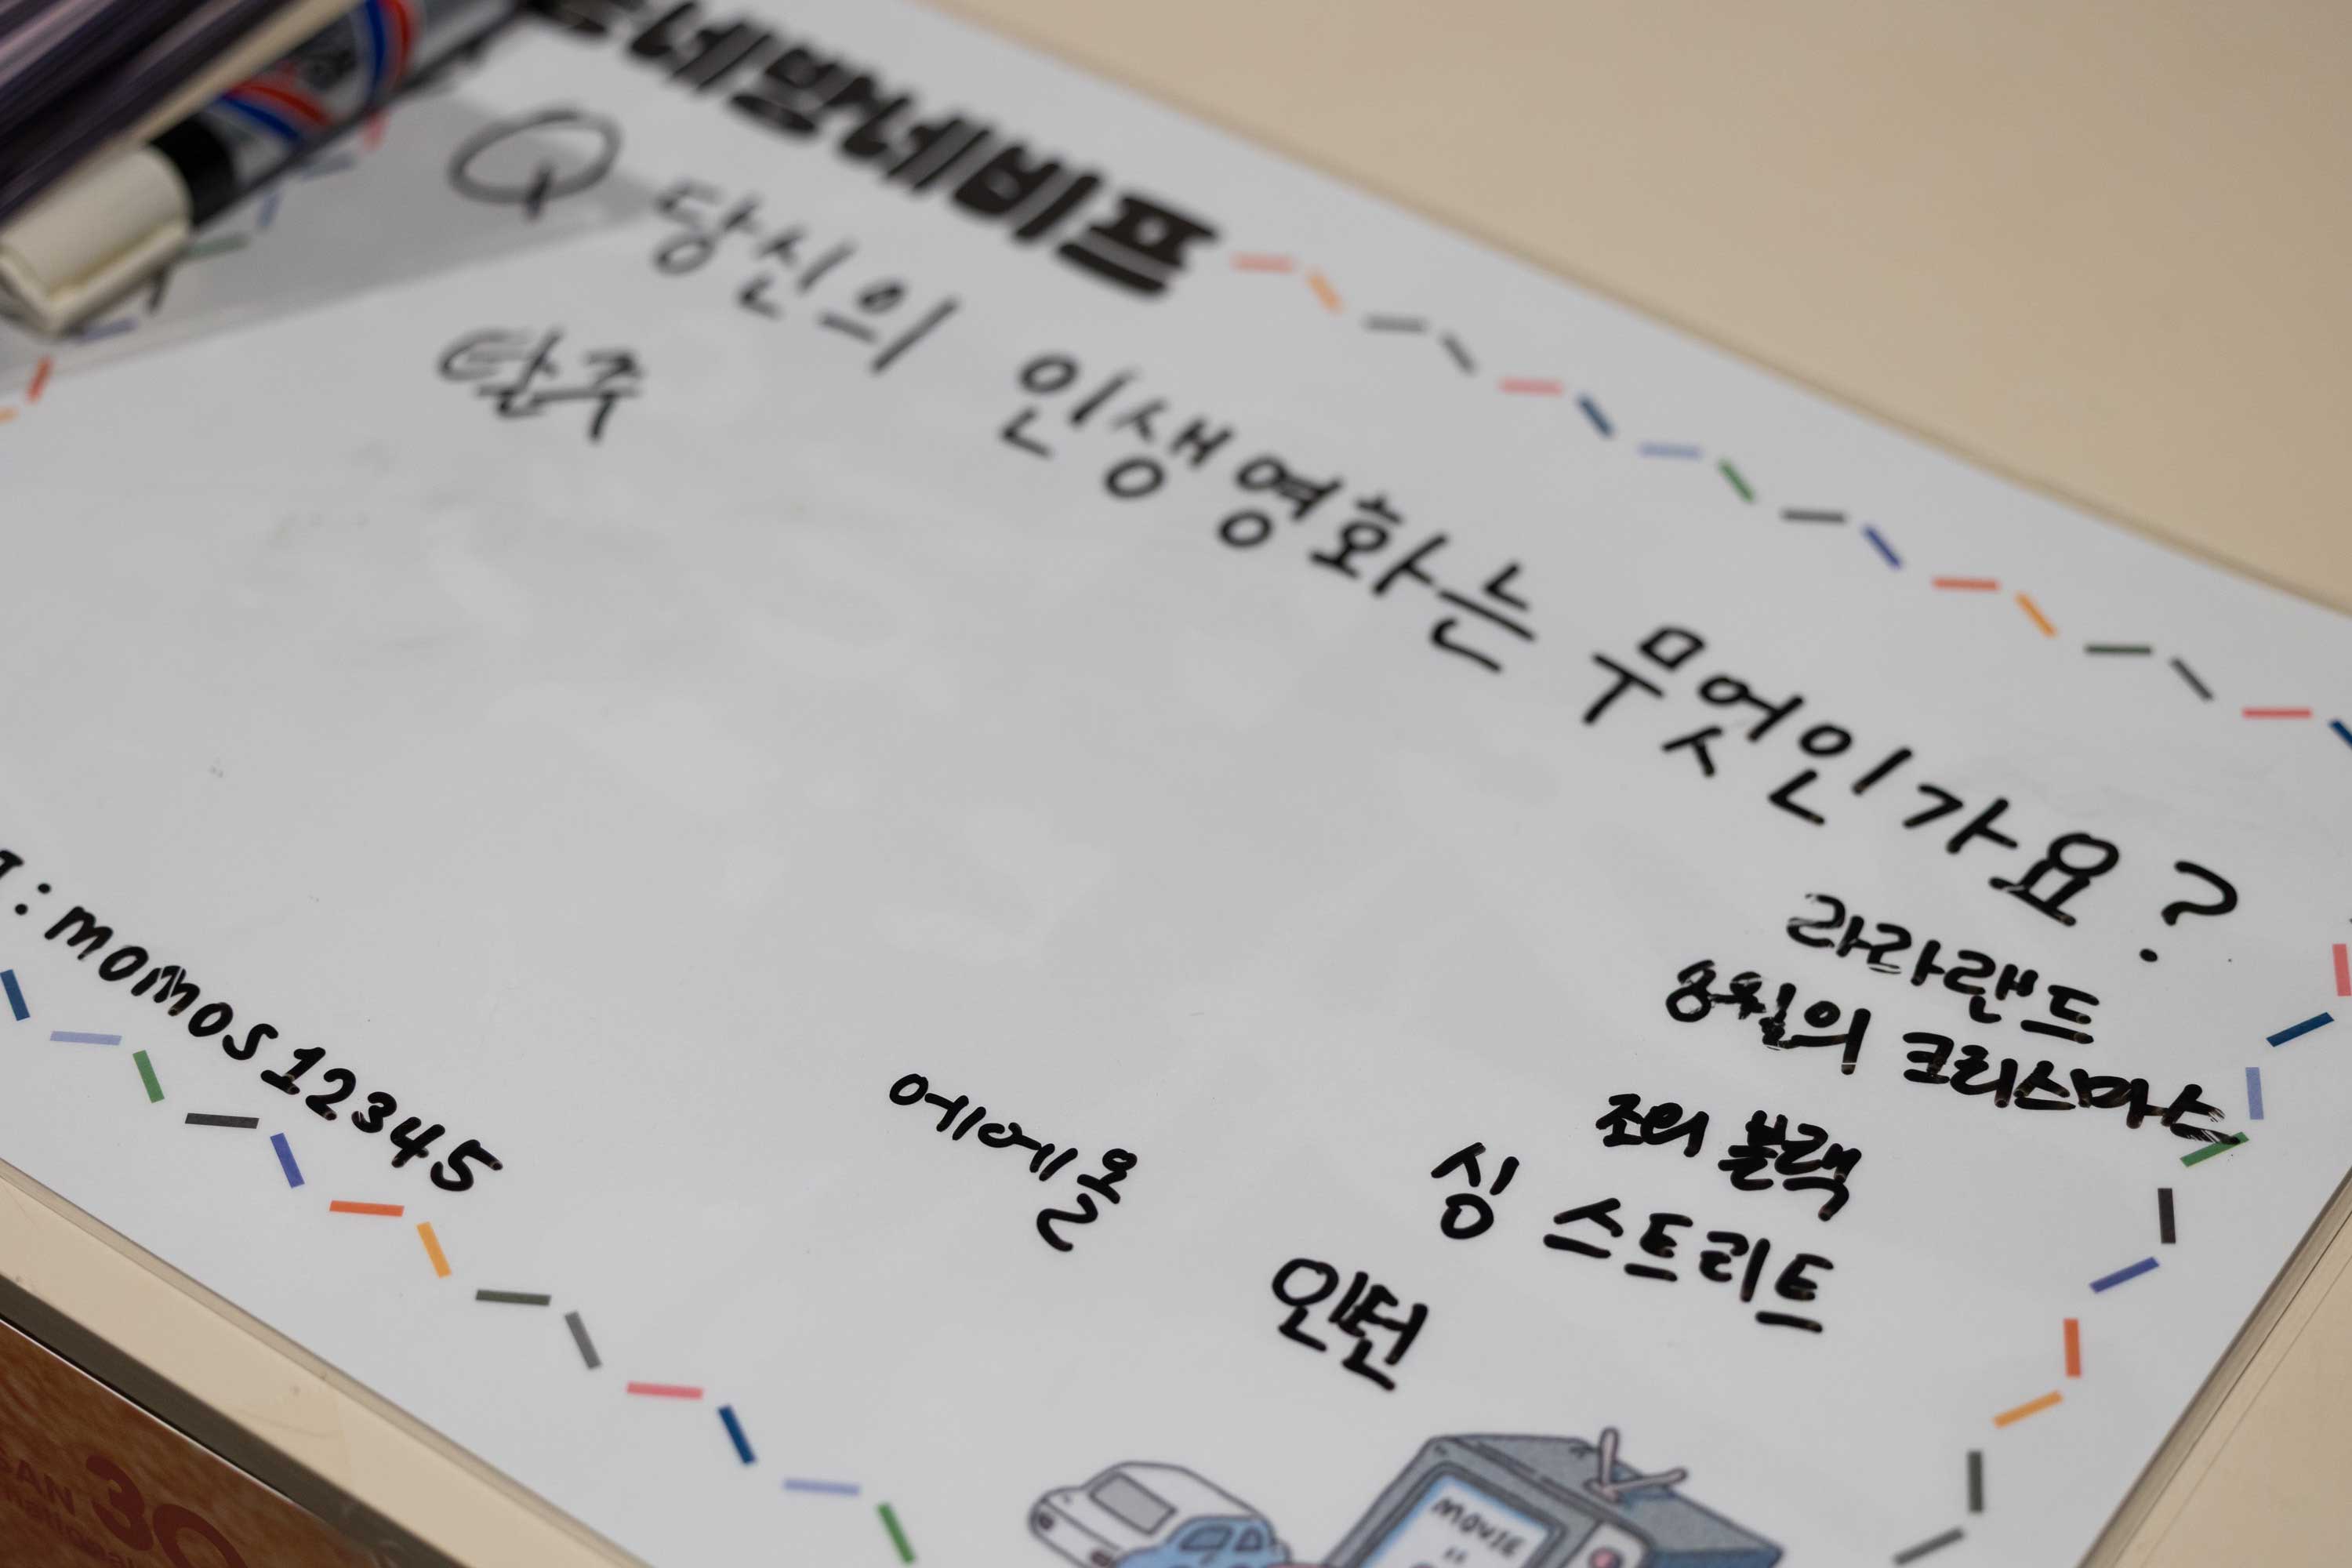 네방네비프
Q 당신의 인생영화는 무엇인가요?
탈주
라라랜드
8월의 크리스마스
조의 블랙
싱 스트리트
인턴
에에올
: momos12345
MOVIE
30